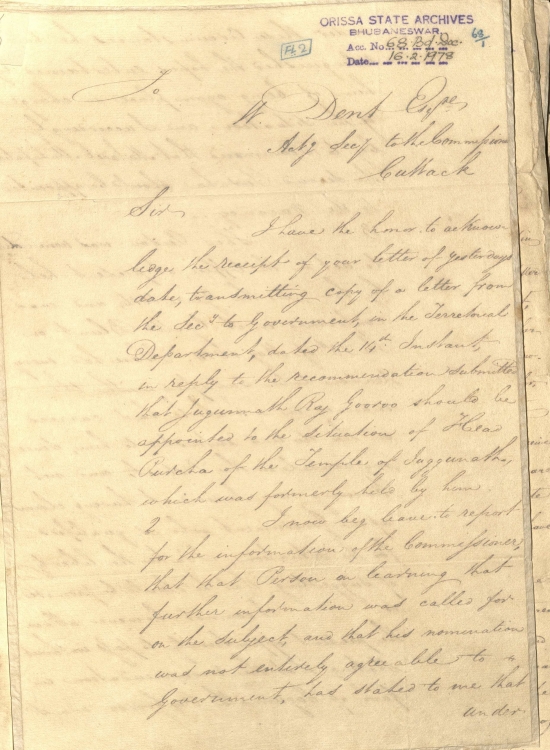 ORISSA STATE ARCHIVES
BHUBANESWAR
Acc. No. 68 Bd. Doc.
Date... 16.2.1978
68/1
Fl. 2
To
W. Dent Esqre
Actg Secy to the Commissioner
Cuttack
Sir
I have the honor to acknow-
ledge the receipt of your letter of yesterdays
date, transmitting copy of a letter from
the Secy to Government, in the Territorial
Department, dated the 14th Instant,
in reply to the recommendation submitted
that Juggunnath Raj Gooroo should be
appointed to the situation of Head
Purcha of the Temple of Juggunath,
which was formerly held by him.
2 I now beg leave to report
for the information of the Commissioner,
that that Person on learning that
further information was called for
on the subject, and that his nomination
was not entirely agreeable to
Government, has stated to me that
under